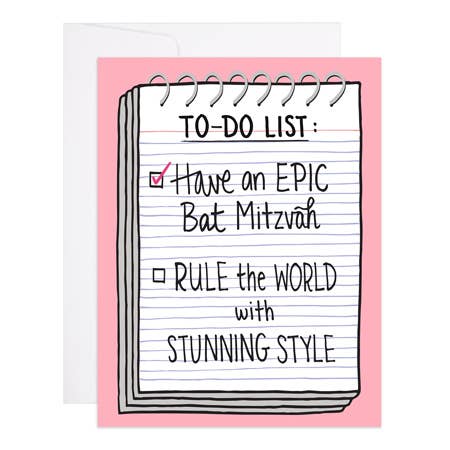 TO-DO LIST:
Have an EPIC
Bat Mitzvah
RULE the WORLD
with
STUNNING STYLE